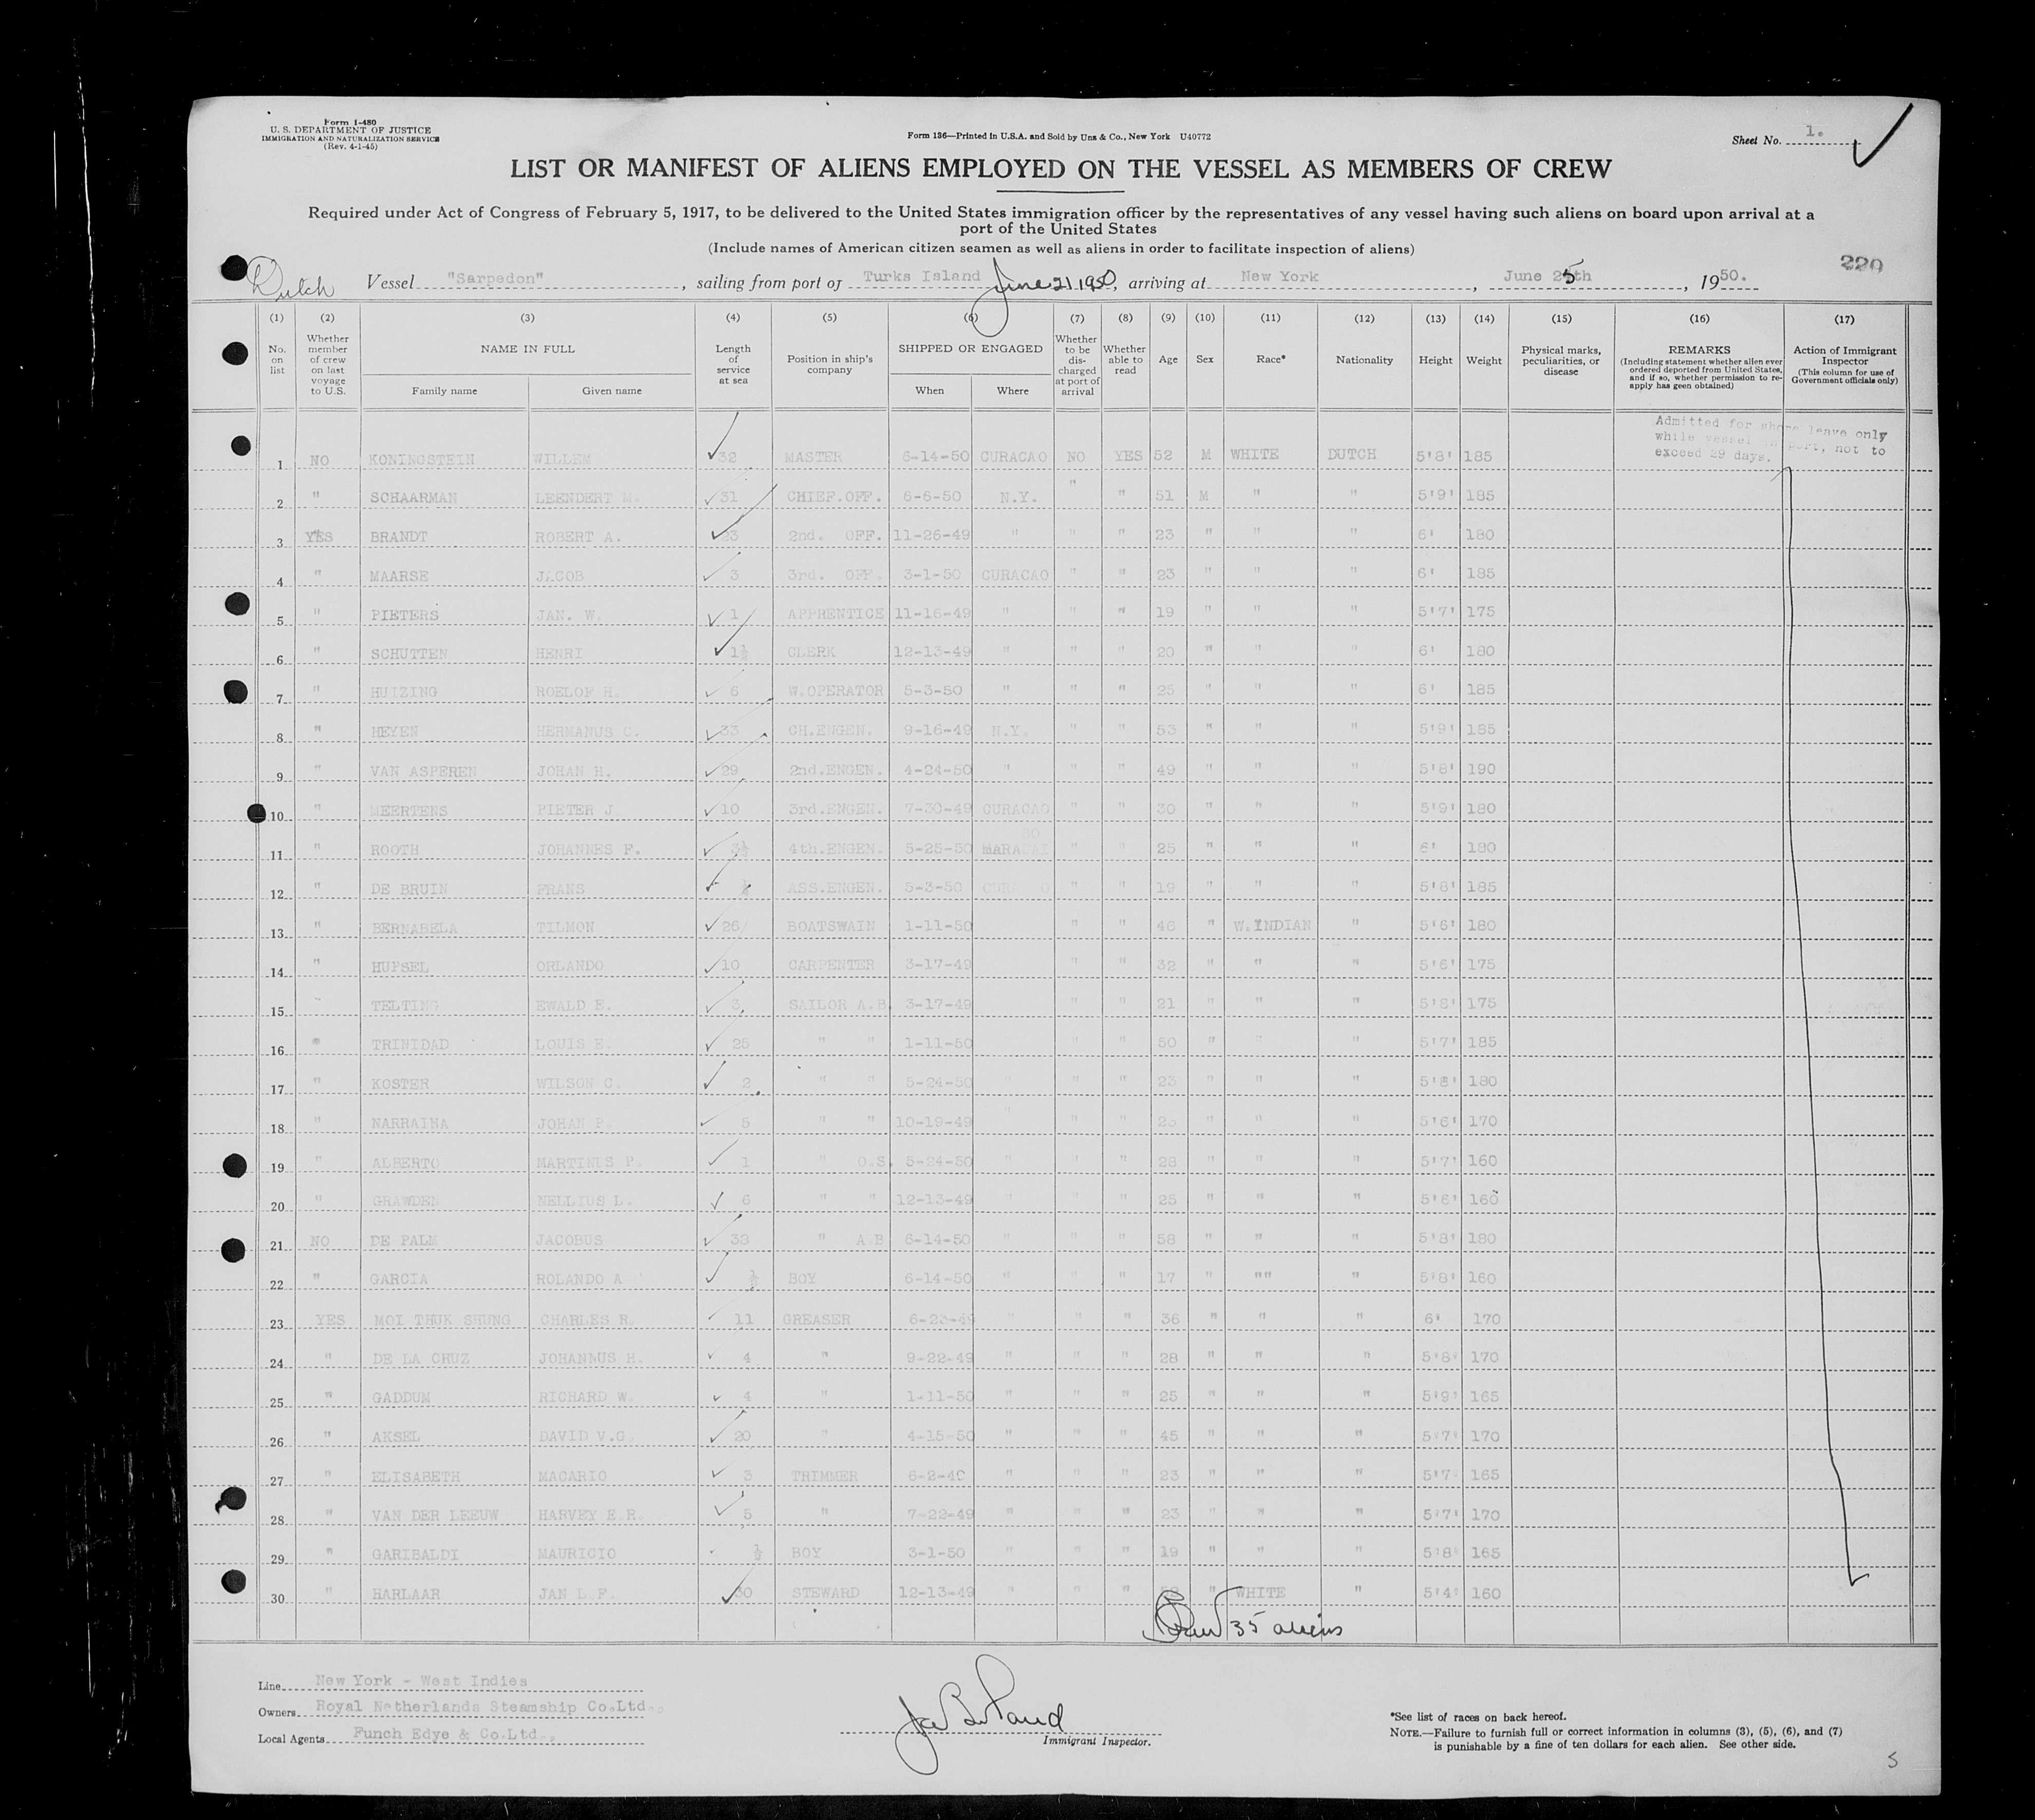 Form I-480
U. S. DEPARTMENT OF JUSTICE
IMMIGRATION AND NATURALIZATION SERVICE
(Rev. 4-1-45)
Form 136—Printed in U.S.A. and Sold by Unz & Co., New York U40772
Sheet No. 1.
LIST OR MANIFEST OF ALIENS EMPLOYED ON THE VESSEL AS MEMBERS OF CREW
Required under Act of Congress of February 5, 1917, to be delivered to the United States immigration officer by the representatives of any vessel having such aliens on board upon arrival at a
port of the United States
(Include names of American citizen seamen as well as aliens in order to facilitate inspection of aliens)
220
Dutch Vessel "Sarpedon", sailing from port of Turks Island June 21 1950, arriving at New York, June 25th, 1950.
(1) (2) (3) (4) (5) (6) (7) (8) (9) (10) (11) (12) (13) (14) (15) (16) (17)
No. on list
Whether member of crew on last voyage to U.S.
NAME IN FULL
Family name Given name
Length of service at sea
Position in ship's company
SHIPPED OR ENGAGED
When Where
Whether to be discharged at port of arrival
Whether able to read
Age Sex Race* Nationality Height Weight
Physical marks, peculiarities, or disease
REMARKS
(Including statement whether alien ever ordered deported from United States, and if so, whether permission to reapply has been obtained)
Action of Immigrant Inspector
(This column for use of Government officials only)
Admitted for shore leave only
while vessel in port, not to
exceed 29 days.
1 NO KONINGSTEIN WILLEM 32 MASTER 6-14-50 CURACAO NO YES 52 M WHITE DUTCH 5'8' 185
2 " SCHAARMAN LEENDERT M. 31 CHIEF.OFF. 6-6-50 N.Y. " " 51 M " " 5'9' 185
3 YES BRANDT ROBERT A. 23 2nd. OFF. 11-26-49 " " " 23 " " " 6' 180
4 " MAARSE JACOB 3 3rd. OFF. 3-1-50 CURACAO " " 23 " " " 6' 185
5 " PIETERS JAN. W. 1 APPRENTICE 11-16-49 " " " 19 " " " 5'7' 175
6 " SCHUTTEN HENRI 1½ CLERK 12-13-49 " " " 20 " " " 6' 180
7 " HUIZING ROELOF H. 6 W.OPERATOR 5-3-50 " " " 25 " " " 6' 185
8 " HEYEN HERMANUS C. 33 CH.ENGEN. 9-16-49 N.Y. " " 53 " " " 5'9' 185
9 " VAN ASPEREN JOHAN H. 29 2nd.ENGEN. 4-24-50 " " " 49 " " " 5'8' 190
10 " MEERTENS PIETER J. 10 3rd.ENGEN. 7-30-49 CURACAO " " 30 " " " 5'9' 180
11 " ROOTH JOHANNES F. 3½ 4th.ENGEN. 5-25-50 " " 25 " " " 6' 190
12 " DE BRUIN FRANS ASS.ENGEN. 5-3-50 " " 19 " " " 5'8' 185
13 " BERNABELA TILMON 26 BOATSWAIN 1-11-50 " " 46 " W.INDIAN " 5'6' 180
14 " HUPSEL ORLANDO 10 CARPENTER 3-17-49 " " 32 " " " 5'6' 175
15 TELTING EWALD E. 3 SAILOR A.B. 3-17-49 " " 21 " " " 5'6' 175
16 " TRINIDAD LOUIS E. 25 " " 1-11-50 " " 50 " " " 5'7' 185
17 " KOSTER WILSON C. 2 " " 5-24-50 " " " 23 " " " 5'8' 180
18 " NARRAINA JOHAN P. 5 " " 10-19-49 " " " " " " 5'6' 170
19 " ALBERTO MARTINUS P. 1 " O.S. 5-24-50 " " " 28 " " " 5'7' 160
20 " GRAWDEN NELLIUS L. 6 " " 12-13-49 " " " 25 " " " 5'6' 160
21 NO DE PALM JACOBUS 38 " A.B 6-14-50 " " " 58 " " " 5'8' 180
22 " GARCIA ROLANDO A BOY 6-14-50 " " " 17 " "" " 5'8' 160
23 YES MOI THUK SHUNG CHARLES R. 11 GREASER " " " 36 " " " 6' 170
24 " DE LA CRUZ JOHANNUS H. 4 " 9-22-49 " " " 28 " " " 5'8' 170
25 " GADDUM RICHARD W. 4 " 1-11-50 " " " 25 " " " 5'9' 165
26 " AKSEL DAVID V.G. 20 " 4-15-50 " " " 45 " " " 5'7' 170
27 " ELISABETH MACARIO 3 TRIMMER " " " 23 " " " 5'7' 165
28 " VAN DER LEEUW HARVEY E.R. 5 " 7-22-49 " " " 23 " " " 5'7' 170
29 " GARIBALDI MAURICIO ½ BOY 3-1-50 " " " 19 " " " 5'8' 165
30 " HARLAAR JAN L.F. 30 STEWARD 12-13-49 " " " " WHITE " 5'4' 160
35 aliens
Line New York - West Indies
Owners Royal Netherlands Steamship Co.Ltd.,
Local Agents Funch Edye & Co.Ltd.,
Immigrant Inspector.
*See list of races on back hereof.
NOTE.—Failure to furnish full or correct information in columns (3), (5), (6), and (7)
is punishable by a fine of ten dollars for each alien. See other side.
5